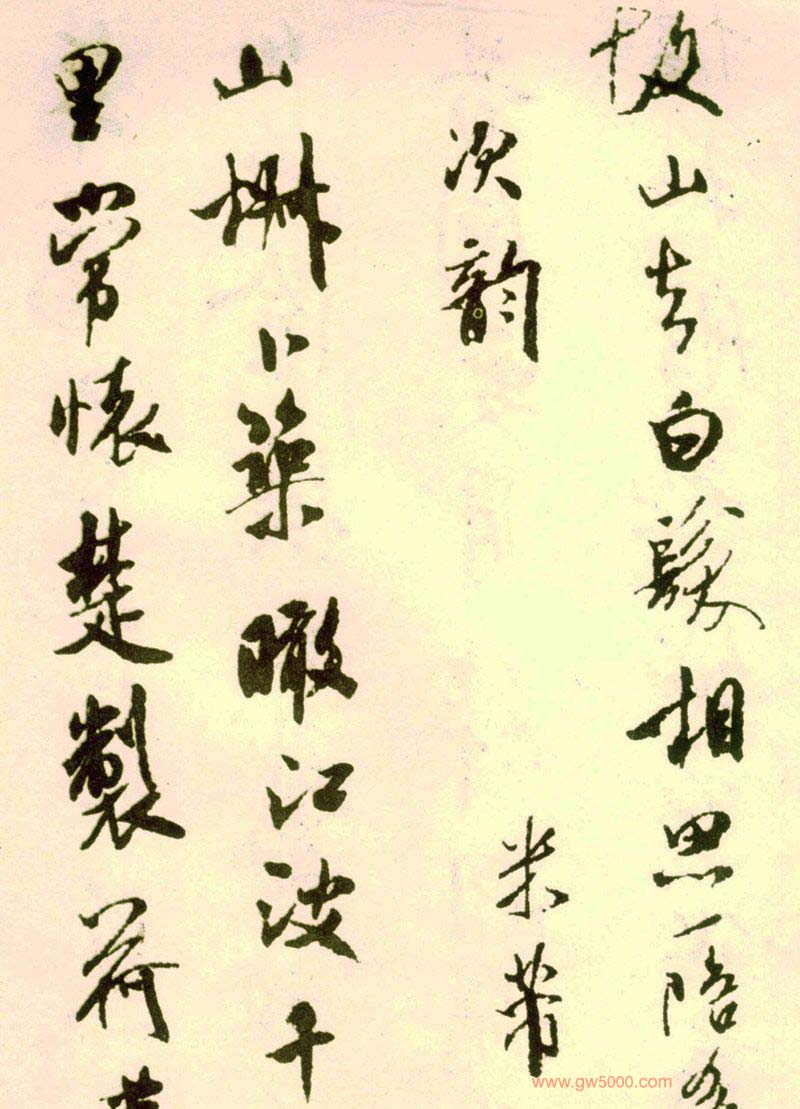 故山去白髮相思一陪
次韵 米芾
山椒卜築瞰江波千
里常懷楚製荷
www.gw5000.com